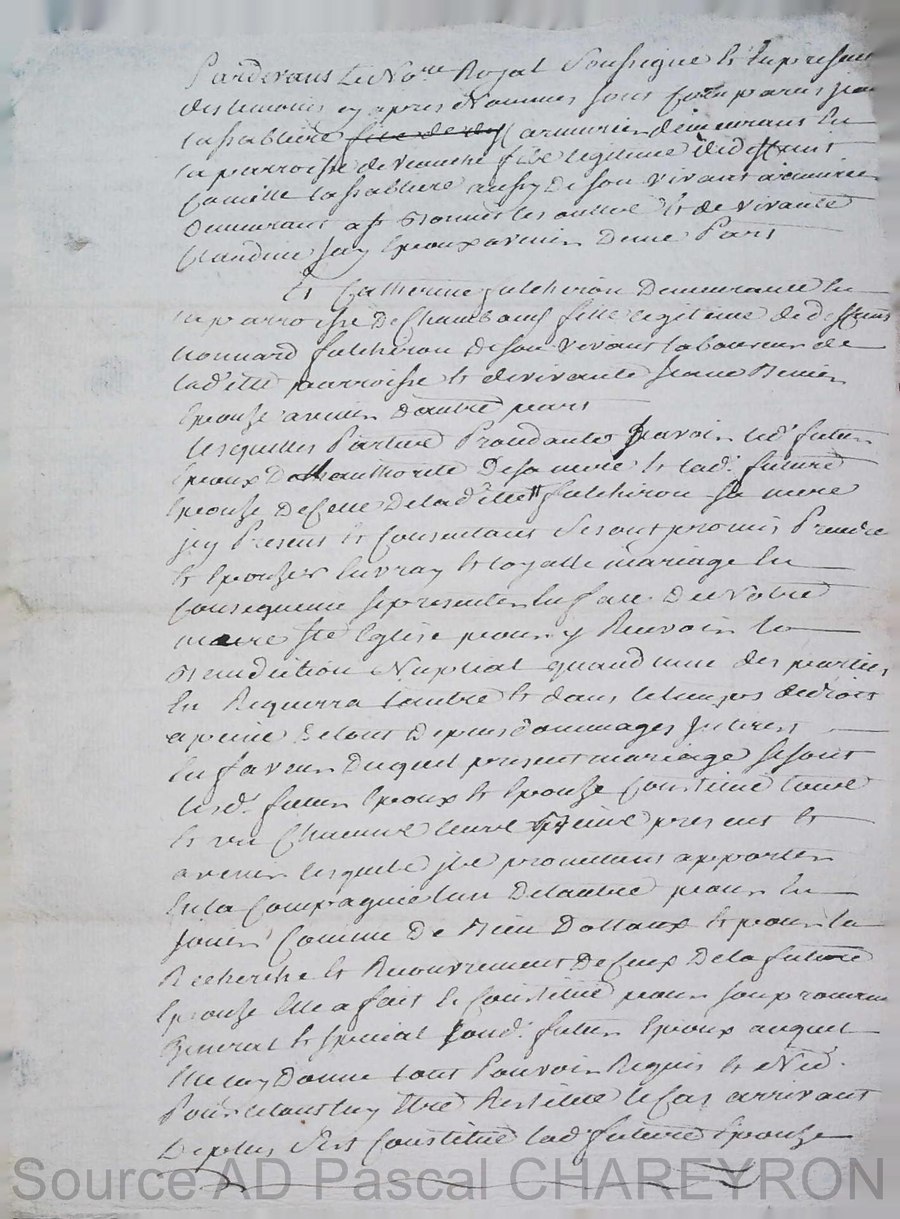 Pardevant Le No.re Royal Soussigné et En presence
des temoins cy apres Nommes sont Comparus jean
lassabliere armurier demeurant En
la parroisse de fils legitime de deffunt
Camille lassabliere aussy de son vivant armurier
Demeurant a st Bonnet les oulles et de vivante
Claudine jay Epoux avenir Dune Part
Et Catherine fulchiron Demeurante En
la parroisse De Chambous fille legitime de deffunt
Leonnard fulchiron de son vivant laboureur de
lad. itte parroisse et de vivante jeane
Epouse avenir Dautre part
lesquelles Parties Procedantes sçavoir led. futur
Epoux De lauthorité De sa mere et lad. future
Epouse De Celle De lad. itte fulchiron sa mere
jcy Presens et Consentant se sont promis Prendre
et Epouser En vray et loyalle mariage En
Consequence se presenter En face De Notre
mere ste Eglise pour y Recevoir la
Benediction Nuptial quand une des parties
En Requerra lautre et dans le temps de droit
a peine De tout Depens dommages jnterest
En faveur Duquel present mariage se sont
lesd. futur Epoux et Epouse Constitué tous
et un Chacun leurs Biens present et
avenir lesquels jls promettent apporter
En la Compagnie lun De lautre pour En
jouir Comme De Bien Dottaux et pour la
Recherche et Recouvrement De Ceux De la future
Epouse Elle a fait et Constitué pour son procureur
General et special led. futur Epoux auquel
Elle luy Donne tout Pouvoir Requis et Ned.
Pour le tout luy Etre Restitué le Cas arrivant
De plus sest Constitué lad. future Epouse
Source AD Pascal CHAREYRON